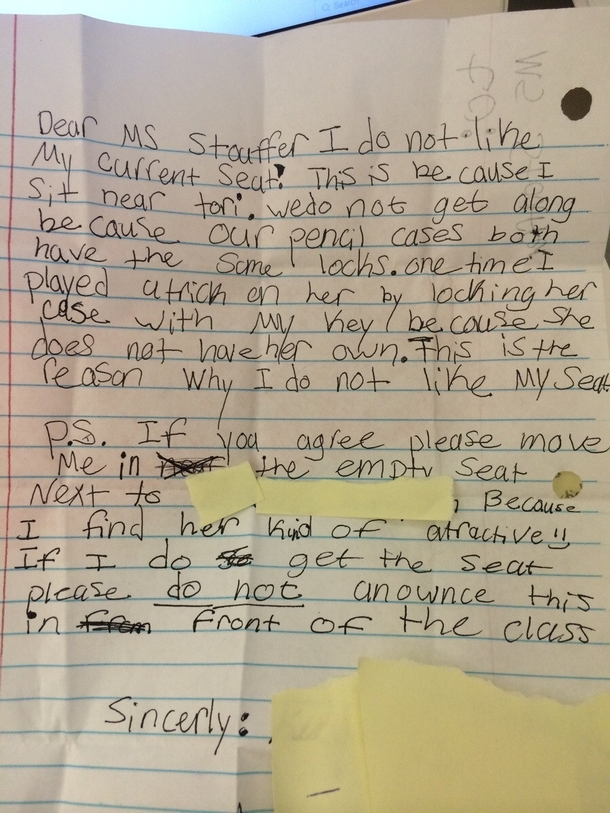 Dear MS Stouffer I do not like
My current Seat! This is be cause I
Sit near tori. wedo not get along
be cause our pencil cases both
have the same locks. one time I
played a trick on her by locking her
case with My Key be cause She
does not have her own. This is the
reason Why I do not like My Seat
P.S. If you agree please move
Me in the empty Seat
Next to Because
I find her kind of atractive!!
If I do get the Seat
please do not anownce this
in front of the class
Sincerly: